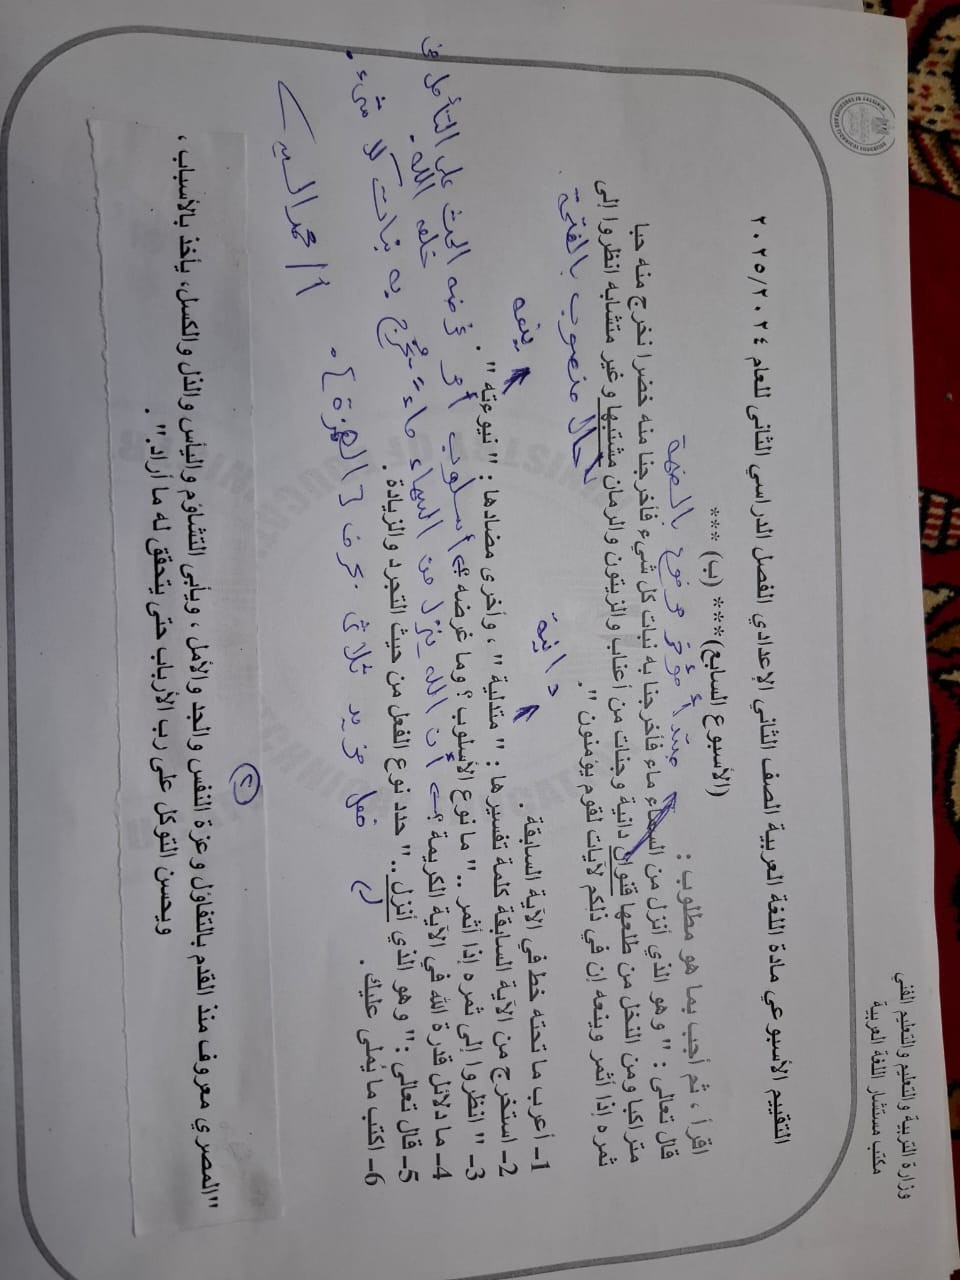 وزارة التربية والتعليم والتعليم الفني
مكتب مستشار اللغة العربية
التقييم الأسبوعي مادة اللغة العربية الصف الثاني الإعدادي الفصل الدراسي الثاني للعام ٢٠٢٥/٢٠٢٤
(الأسبوع السابع)*** (ب) ***
اقرأ ، ثم أجب بما هو مطلوب :
مبتدأ مؤخر مرفوع بالضمة
قال تعالى : " وهو الذي أنزل من السماء ماء فأخرجنا به نبات كل شيء فأخرجنا منه خضرا نخرج منه حبا
متراكبا ومن النخل من طلعها قنوان دانية وجنات من أعناب والزيتون والرمان مشتبها وغير متشابه انظروا إلى
ثمره إذا أثمر وينعه إن في ذلكم لآيات لقوم يؤمنون " .
حال منصوب بالفتحة
1- أعرب ما تحته خط في الآية السابقة .
دانية
ينعه
2- استخرج من الآية السابقة كلمة تفسيرها : " متدلية " ، وأخرى مضادها : " نيوءته " .
3- " انظروا إلى ثمره إذا أثمر .. " ما نوع الأسلوب ؟ وما غرضه ؟ أسلوب أمر غرضه الحث على التأمل في
خلق الله.
4- ما دلائل قدرة الله في الآية الكريمة ؟ أن الله ينزل من السماء ماء يخرج به نبات كل شيء .
5- قال تعالى : " وهو الذي أنزل .. " حدد نوع الفعل من حيث التجرد والزيادة .
فعل مزيد ثلاثى بحرف [ الهمزة ] .
6- اكتب ما يُملى عليك .
أ/ محمد السيد
٢
"المصري معروف منذ القدم بالتفاؤل وعزة النفس والجد والأمل ، ويأبى التشاؤم واليأس والذل والكسل، يأخذ بالأسباب ،
ويحسن التوكل على رب الأرباب حتى يتحقق له ما أراد." .